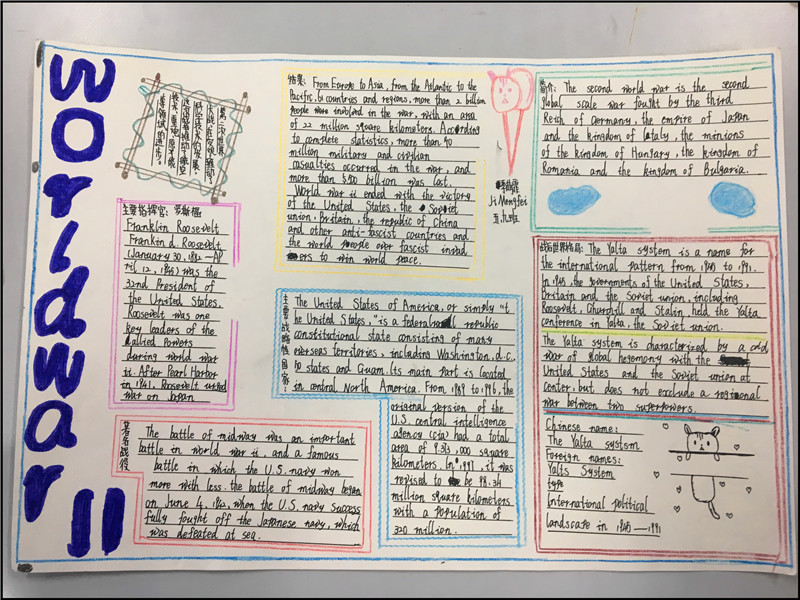 World war II
第二次世界
主要指挥官：罗斯福
Franklin Roosevelt
Franklin d. Roosevelt
(January 30, 1882 — AP
ril 12, 1945) was the
32nd President of
the United States.
Roosevelt was one
key leaders of the
Allied Powers
during world war
ii. After Pearl Harbor
in 1941, Roosevelt
war on Japan
著名战役
The battle of midway was an important
battle in world war ii, and a famous
battle in which the U.S. navy won
more with less. the battle of midway began
on June 4, 1942, when the U.S. navy success
fully fought off the Japanese navy, which
was defeated at sea.
结果: From Europe to Asia, from the Atlantic to the
Pacific, 61 countries and regions, more than 2 billion
people were involved in the war, with an area
of 22 million square kilometers. According
to complete statistics, more than 90
million military and civilian
casualties occurred in the war, and
more than billion was lost.
World War ii ended with the victory
of the United States, the Soviet
union, Britain, the republic of China
and other anti-fascist countries and
the world people over fascist invad
ers to win world peace.
Ji Mengfei
五.九班
主要战略性国家:
The United States of America, or simply "t
he United States," is a federal republic
constitutional state consisting of many
overseas territories, including Washington, d.c.,
50 states and Guam. Its main part is located
in central North America. From 1989 to 1996, the
original version of the
U.S. central intelligence
agency (cia) had a total
area of 9.373,000 square
kilometers. In 1997, it was
revised to be 98.34
million square kilometers
with a population of
320 million.
简介: The second world war is the second
global scale war fought by the third
Reich of Germany, the empire of Japan
and the kingdom of Italy, the minions
of the kingdom of Huntary, the kingdom of
Romania and the kingdom of Bulgaria.
战后世界格局: The Yalta system is a name for
the international pattern from 1945 to 1991.
In 1945, the governments of the United States,
Britain and the Soviet union, including
Roosevelt, Churchill and Stalin, held the Yalta
conference in Yalta, the Soviet union.
The Yalta system is characterized by a cold
war of global hegemony with the
United States and the Soviet union at
center, but does not exclude a regional
war between two superpowers.
Chinese name:
The Yalta system
Foreign names:
Yalts System
type
International political
landscape in 1945 — 1991